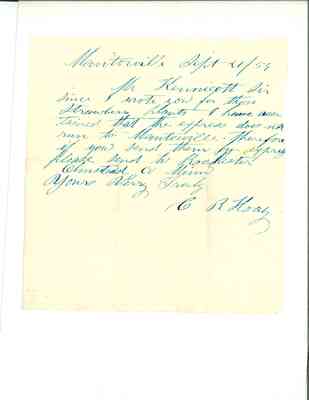 Mantorville Sept 20/59
Mr Kennicott Sir
since I wrote you for them
Strawberry plants I have ascer
tained that the express does not
run to Mantorville. Therefore
if you send them by express
please send to Rochester
Olmsted Co Minn
Yours Very Truly
C R